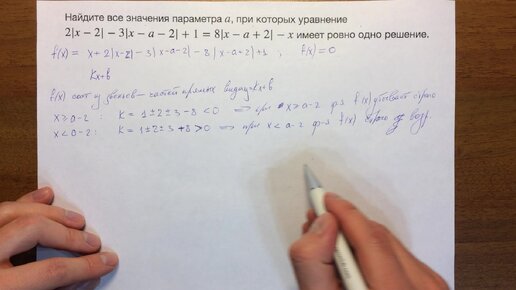 Найдите все значения параметра a, при которых уравнение
2|x − 2| − 3|x − a − 2| + 1 = 8|x − a + 2| − x имеет ровно одно решение.
f(x) = x + 2|x-2| - 3|x-a-2| - 8|x-a+2| + 1 ; f(x) = 0
kx+b
f(x) сост из звеньев – частей прямых вида y=kx+b
x ≥ a-2 : k = 1 ± 2 ± 3 - 8 < 0 ⇒ при x ≥ a-2 ф-я f(x) убывает строго
x < a-2 : k = 1 ± 2 ± 3 + 8 > 0 ⇒ при x < a-2 ф-я f(x) строго возр.